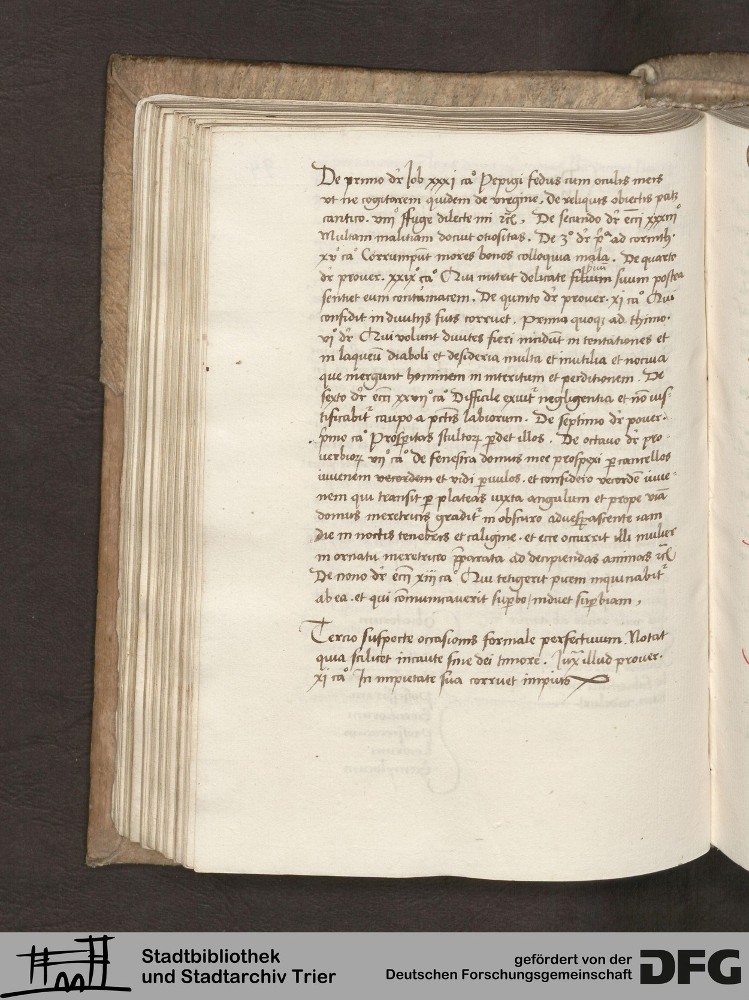 De primo dr Job xxxi caº Pepigi fedus cum oculis meis
vt ne cogitarem quidem de virgine, de reliquis obiectis patz
cantico. viiiº ffuge dilecte mi rcͣ. De secundo dr ecci xxxiiiº
Multam malitiam docuit otiositas. De 3º dr pͣ ad corinth.
xvº caº Corrumpūt mores bonos colloquia mala. De quarto
dr prouer. xxixº caº Qui nutrit delicate suum postea
sentiet eum contūmacem. De quinto dr prouer. xi caº Qui
confidit in diuitijs suis corruet. Prima quoqz ad thimo.
viº dr Qui volunt diuites fieri incidūt in tentationes et
in laqueū diaboli et desideria multa et inutilia et nociua
que mergunt hominem in interitum et perditionem. De
sexto dr ecci xxviiº caº Difficile exuit negligentia et nō ius-
tificabit caupo a pctis labiorum. De septimo dr pouer.
pmo caº Prosp̄itas stultorz p̄det illos. De octauo dr pro
uerbiorz viiº caº de fenestra domus mee prospexi p cancellos
iuuenem vecordem et vidi pͣuulos. et considero vecordē iuue-
nem qui transit p plateas iuxta angulum et prope viā
domus meretricis gradit in obscuro aduesp̄ascente iam
die in noctis tenebris et caligine. et ecce occurrit illi mulier
in ornatu meretricio p̄parata ad decipiendas animas rcͣ
De nono dr ecci xiiiº caº Qui tetigerit picem inquinabit
ab ea. et qui cōmunicauerit sup̄bo induet sup̄biam,
Tercio suspecte occasionis formale perfectiuum. Notat
quia scilicet incaute sine dei timore. Iuxͣ illud prouer.
xi caº In impietate sua corruet impius
Stadtbibliothek
und Stadtarchiv Trier
gefördert von der
Deutschen Forschungsgemeinschaft
DFG